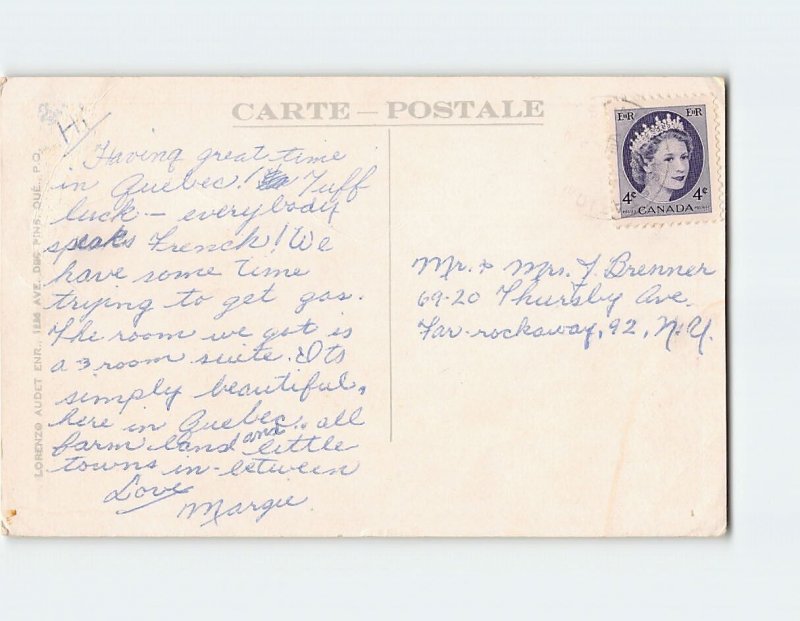 CARTE – POSTALE
Hi
Having great time
in Quebec! Tuff
luck – everybody
speaks French! We
have some time
trying to get gas.
The room we got is
a 3 room suite. Its
simply beautiful,
here in Quebec.. all
farm land and little
towns in-between
Love
Margie.
E R E R
4¢ 4¢
POSTES CANADA POSTAGE
Mr. & Mrs. J. Brenner
69-20 Thursby Ave.
Far-rockaway, 92, N.Y.
LORENZO AUDET ENR., AVE. DES PINS, QUE., P.Q.